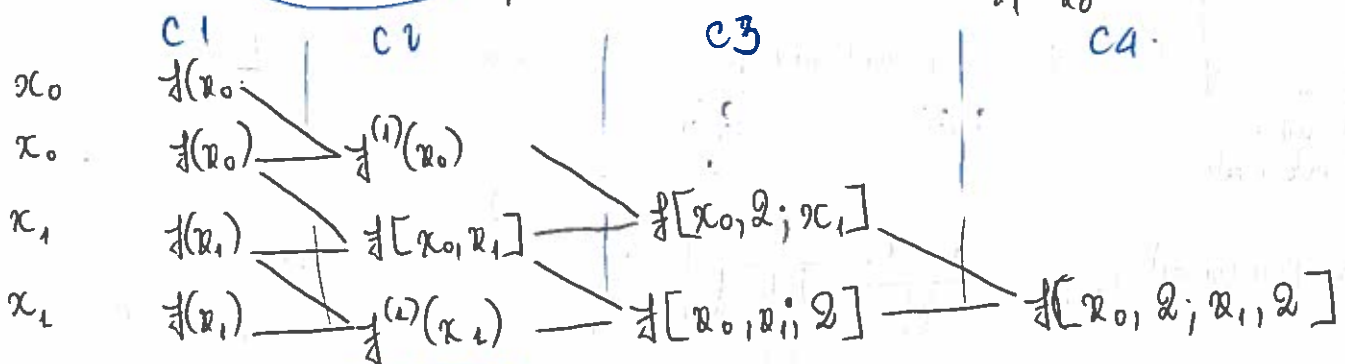 C1 C2 C3 C4.
x₀ f(x₀
x₀ f(x₀) f⁽¹⁾(x₀)
x₁ f(x₁) f[x₀,x₁] f[x₀,2;x₁]
x₁ f(x₁) f⁽¹⁾(x₁) f[x₀,x₁;2] f[x₀,2;x₁,2]